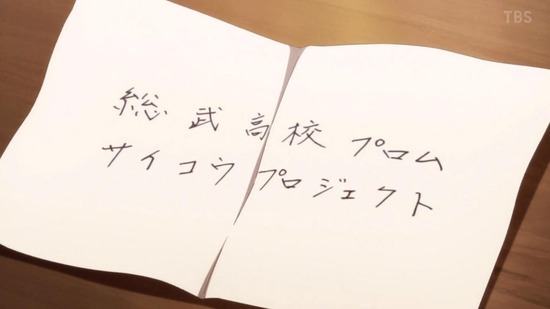 TBS
総武高校プロム
サイコウプロジェクト